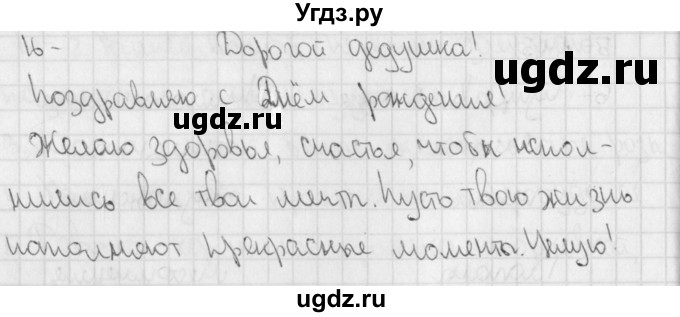 Угдз.ру
16- Дорогой дедушка!
ugdz.ru
Поздравляю с Днём рождения!
ugdz.ru
Желаю здоровья, счастья, чтобы испол-
нились все твои мечты. Пусть твою жизнь
наполняют прекрасные моменты. Целую!
ugdz.ru